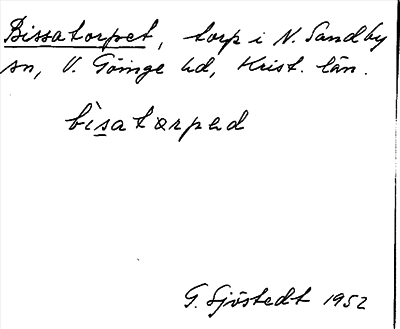 Bissatorpet, torp i N. Sandby
sn, V. Göinge hd, Krist. län.
bìsatɑrpəd
G. Sjöstedt 1952